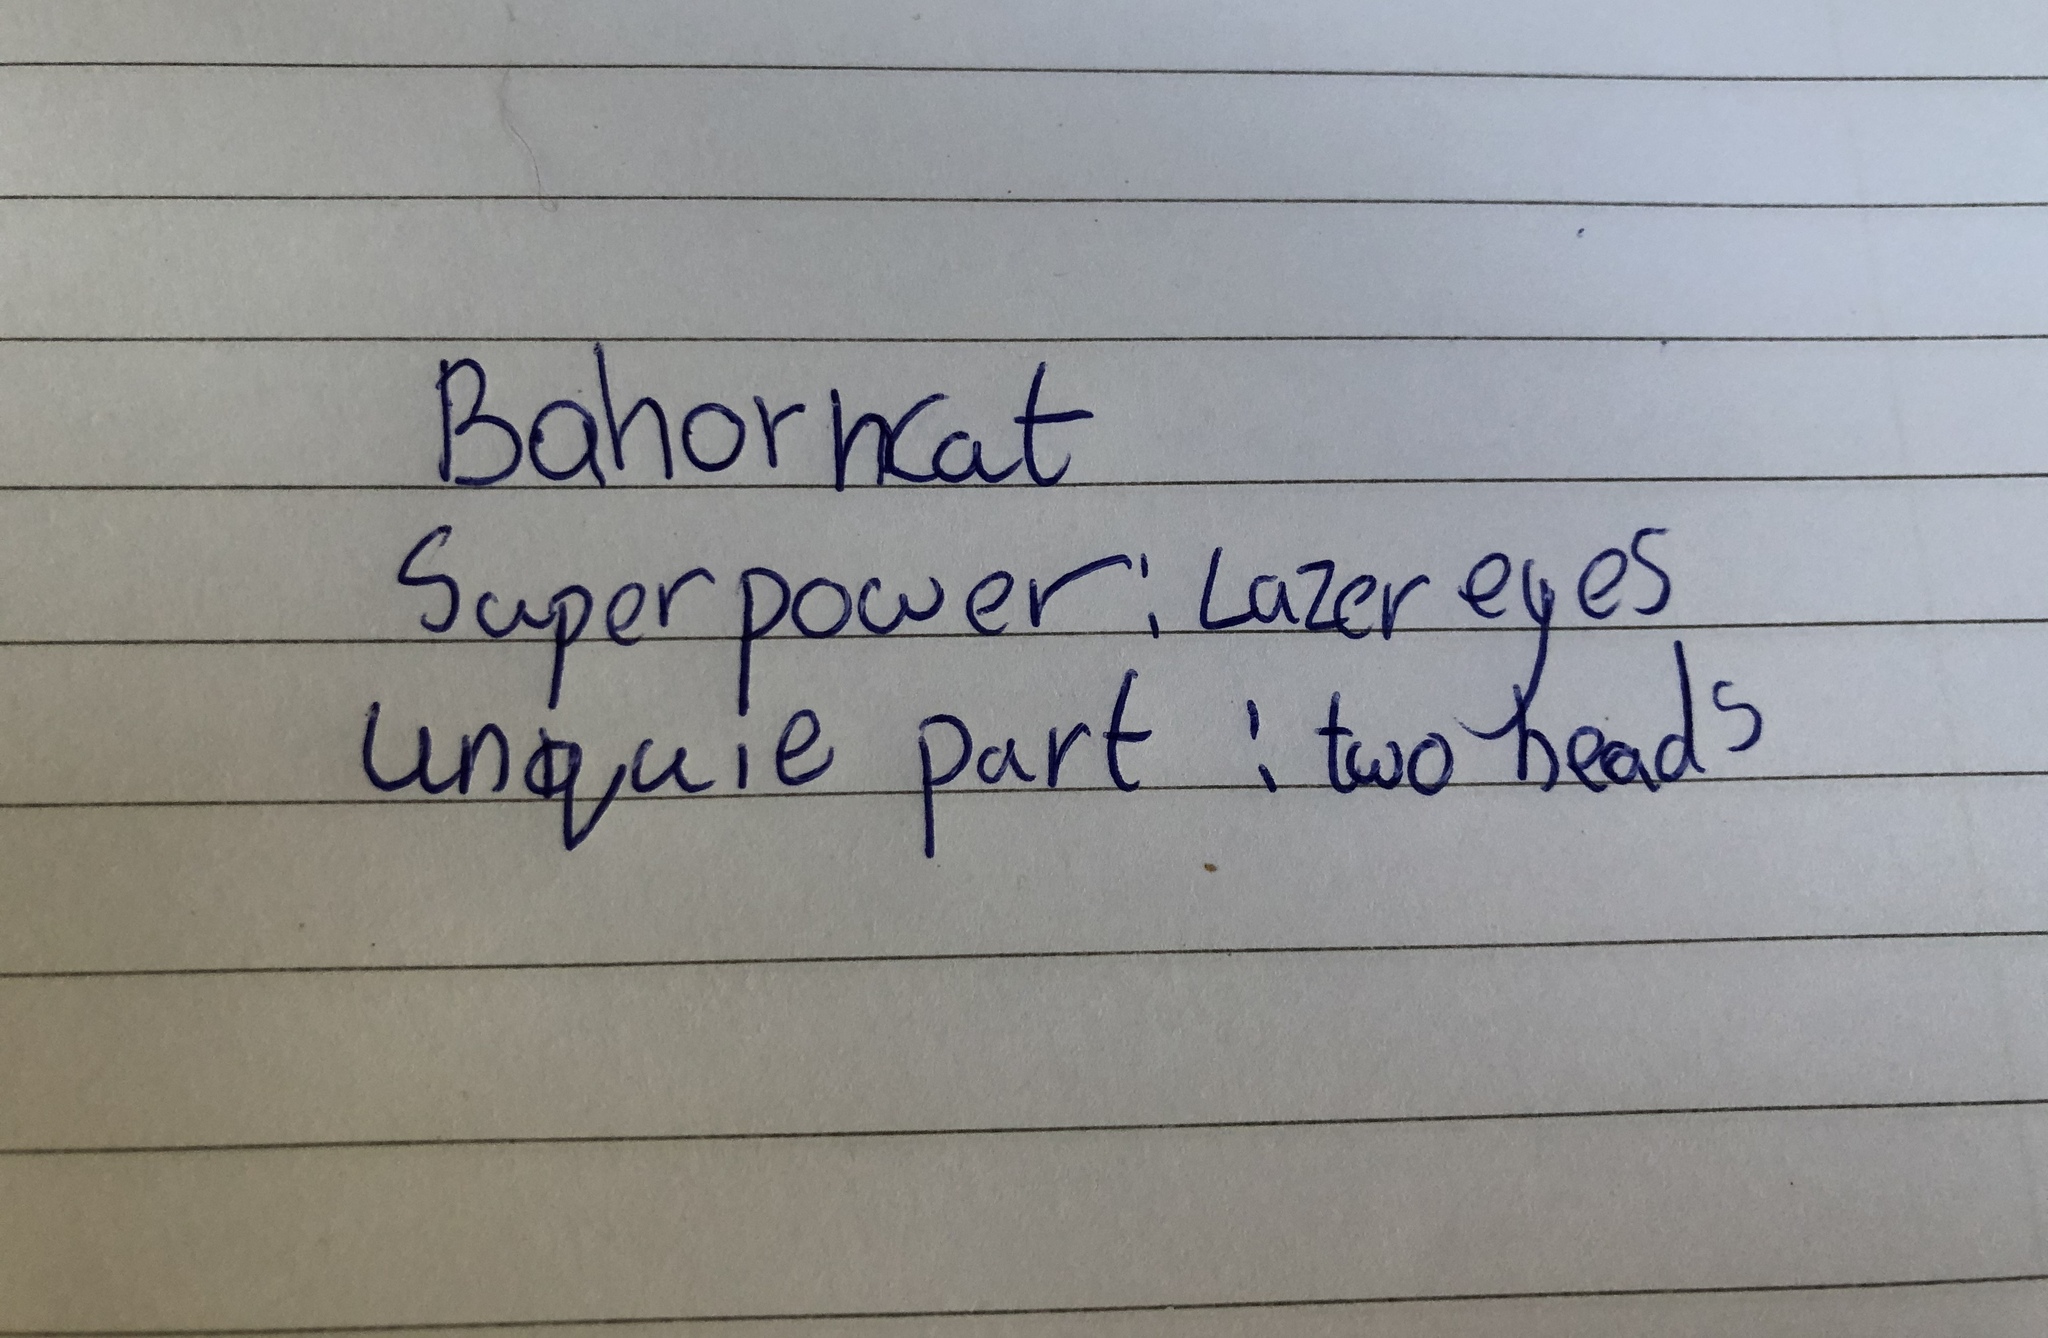 Bahorncat
Superpower: Lazer eyes
unquie part : two heads